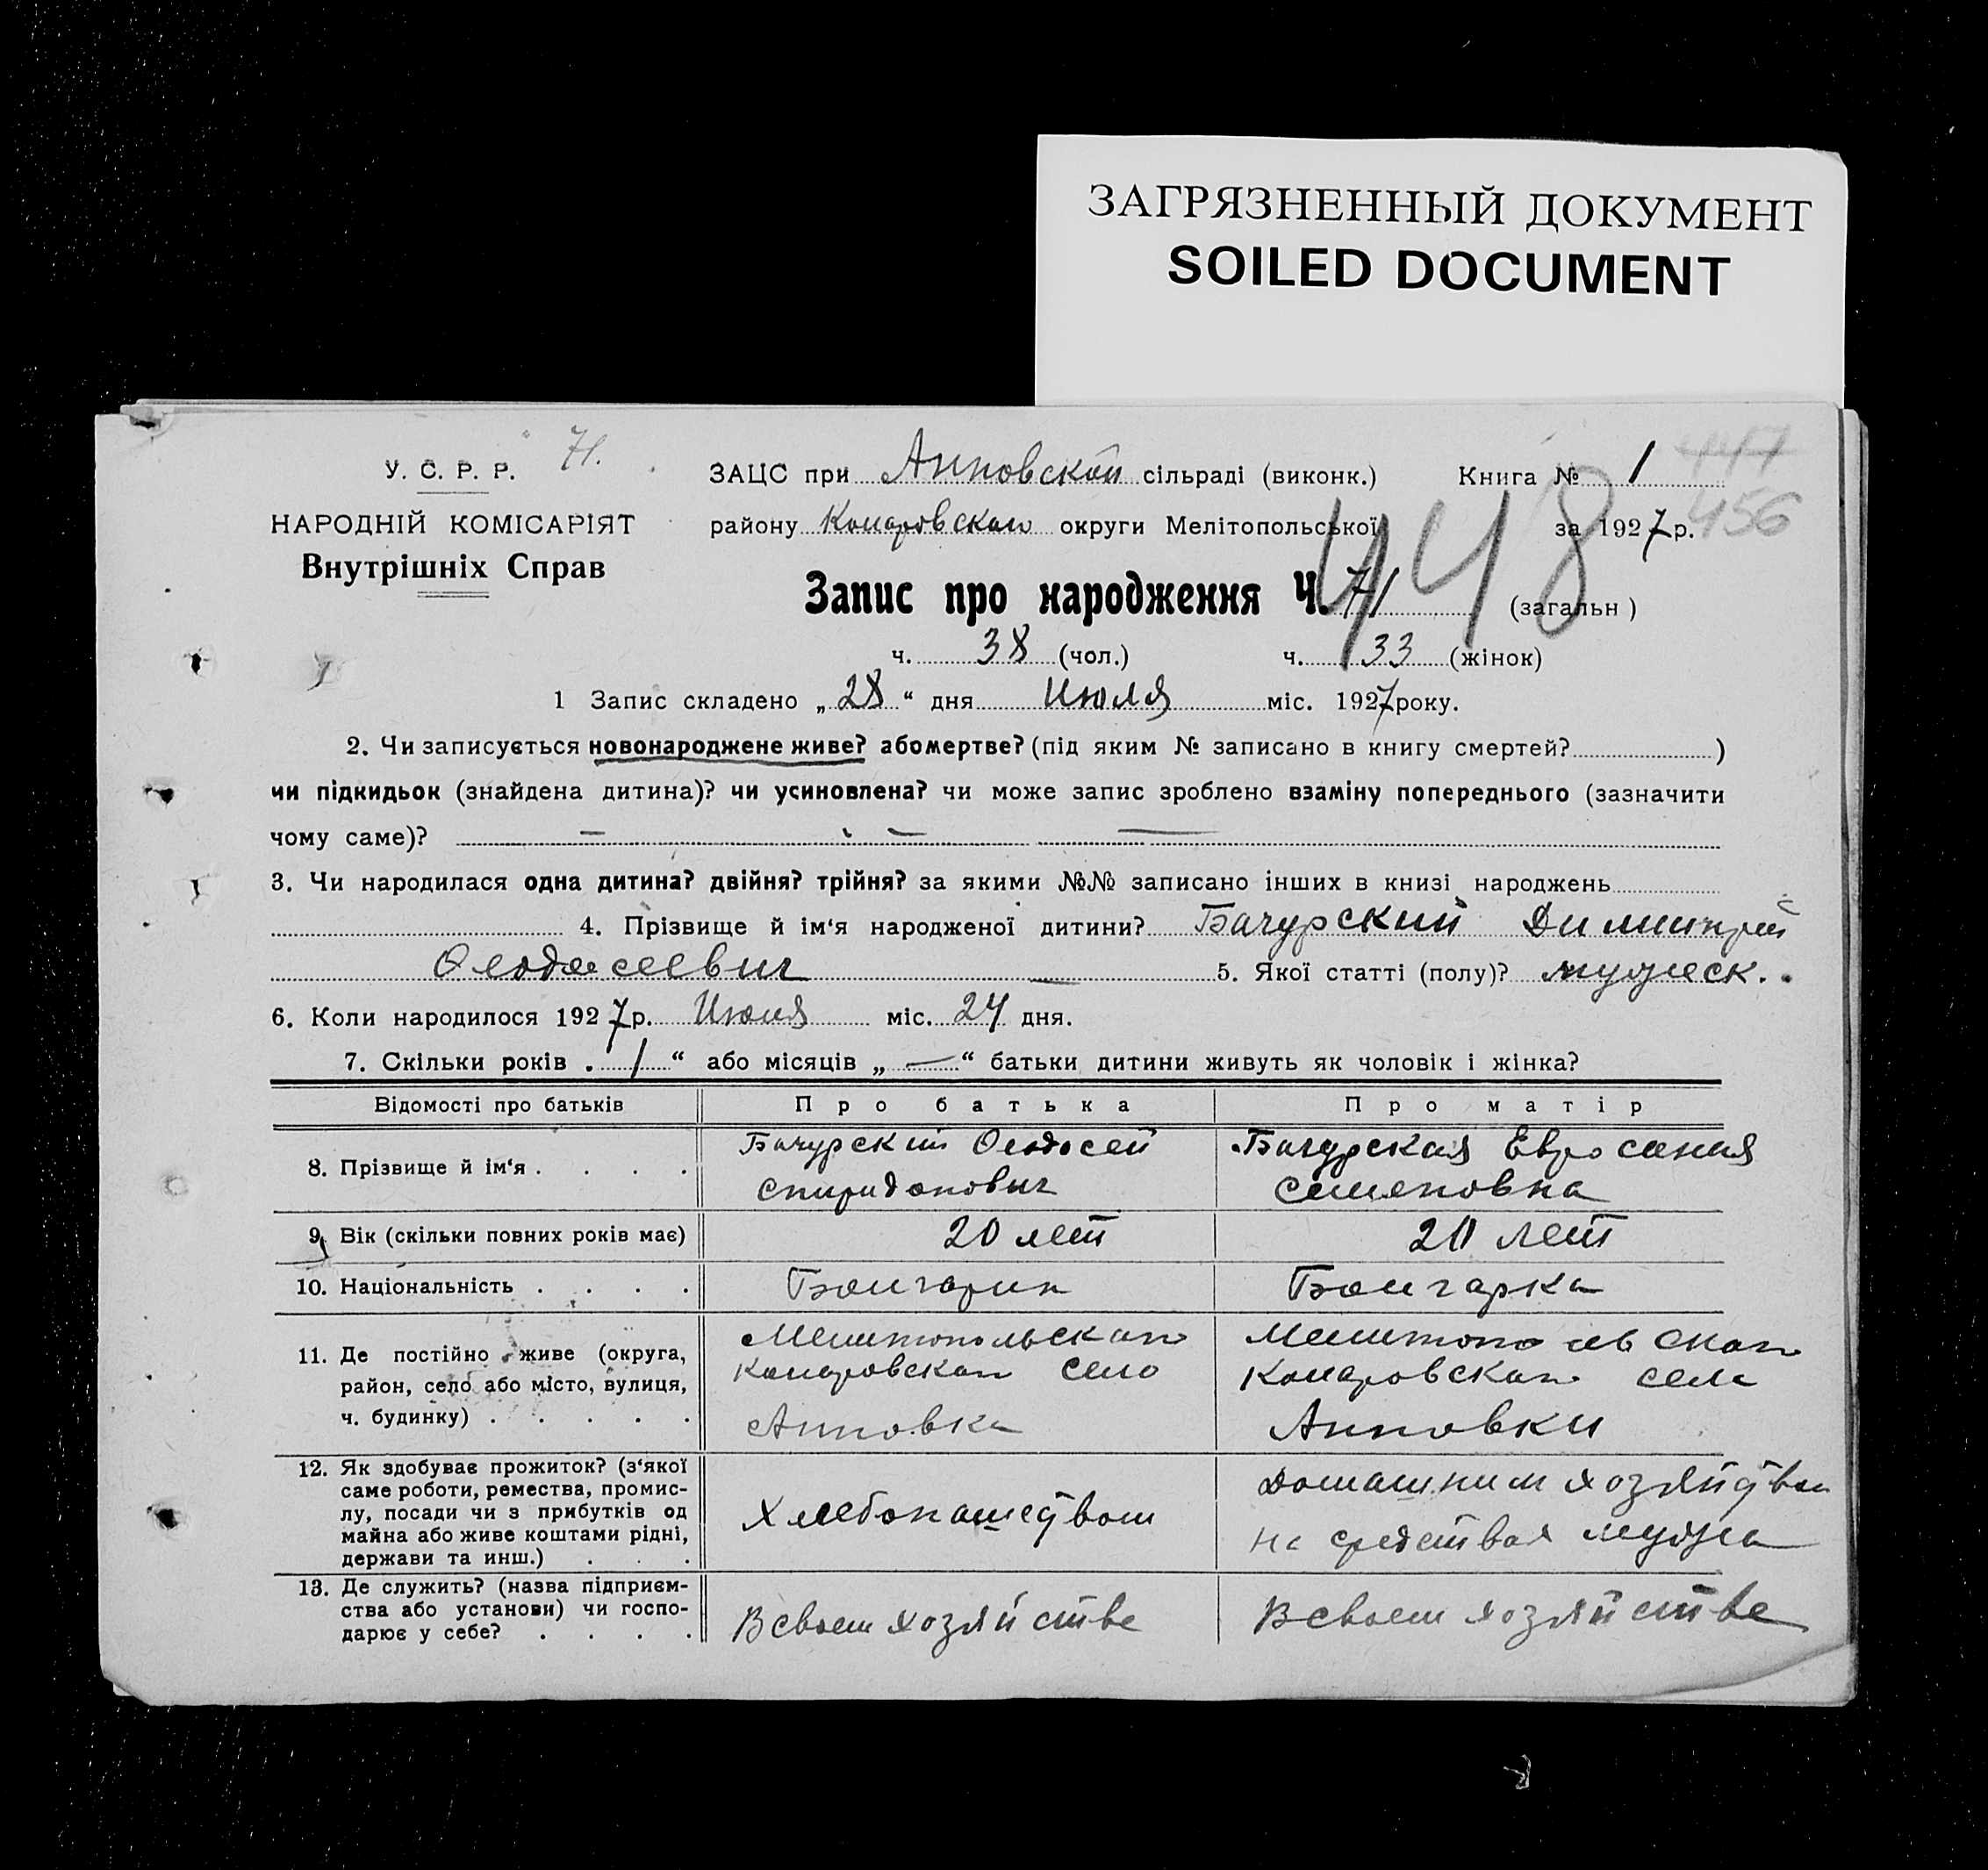 ЗАГРЯЗНЕННЫЙ ДОКУМЕНТ
SOILED DOCUMENT
У. С. Р. Р. 71.
НАРОДНІЙ КОМІСАРІЯТ
Внутрішніх Справ
ЗАЦС при Анновской сільраді (виконк.) Книга № 1 447
району округи Мелітопольської за 1927 р. 456
448
Запис про народження Ч. 71 (загальн)
ч. 38 (чол.) ч. 33 (жінок)
1 Запис складено „ 28 “ дня Июля міс. 1927 року.
2. Чи записується новонароджене живе? або мертве? (під яким № записано в книгу смертей? )
чи підкидьок (знайдена дитина)? чи усиновлена? чи може запис зроблено взаміну попереднього (зазначити
чому саме)? — — —
3. Чи народилася одна дитина? двійня? трійня? за якими №№ записано інших в книзі народжень
4. Прізвище й ім‘я народженої дитини? Бачурский Димитрий
Феодосеевич — 5. Якої статті (полу)? мужеск.
6. Коли народилося 1927 р. Июля міс. 24 дня.
7. Скільки років . 1 “ або місяців „ — “ батьки дитини живуть як чоловік і жінка?
Відомості про батьків Про батька Про матір
8. Прізвище й ім‘я . . . . Бачурский Феодосей Спиридонович Бачурская Евросиния Семеновна
9. Вік (скільки повних років має) 20 лет 20 лет
10. Національність . . . . Болгарин Болгарка
11. Де постійно живе (округа,
район, село або місто, вулиця,
ч. будинку) . . . . .
Мелитопольская
село
Анновка
Мелитопольская
села
Анновки
12. Як здобуває прожиток? (з‘якої
саме роботи, ремества, промис-
лу, посади чи з прибутків од
майна або живе коштами рідні,
держави та инш.) . . .
Хлебопашеством
Домашним хозяйством
на средствах мужа
13. Де служить? (назва підприєм-
ства або установи) чи госпо-
дарює у себе? . . . .
В своем хозяйстве
В своем хозяйстве